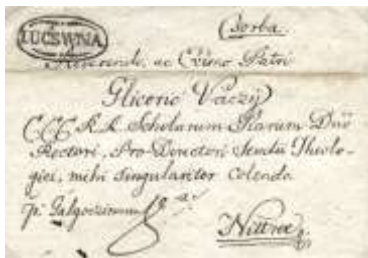 Csorba
LUCSWNA
Reverendo, ac Exímo Patri
Glicerio Váczÿ
CCC R.R. Scholarum Piarum Dnō
Rectori, Pro-Directori Studii Theolo-
gici, mihi Singulariter Colendo
p. Galgoczinum
Nittriæ